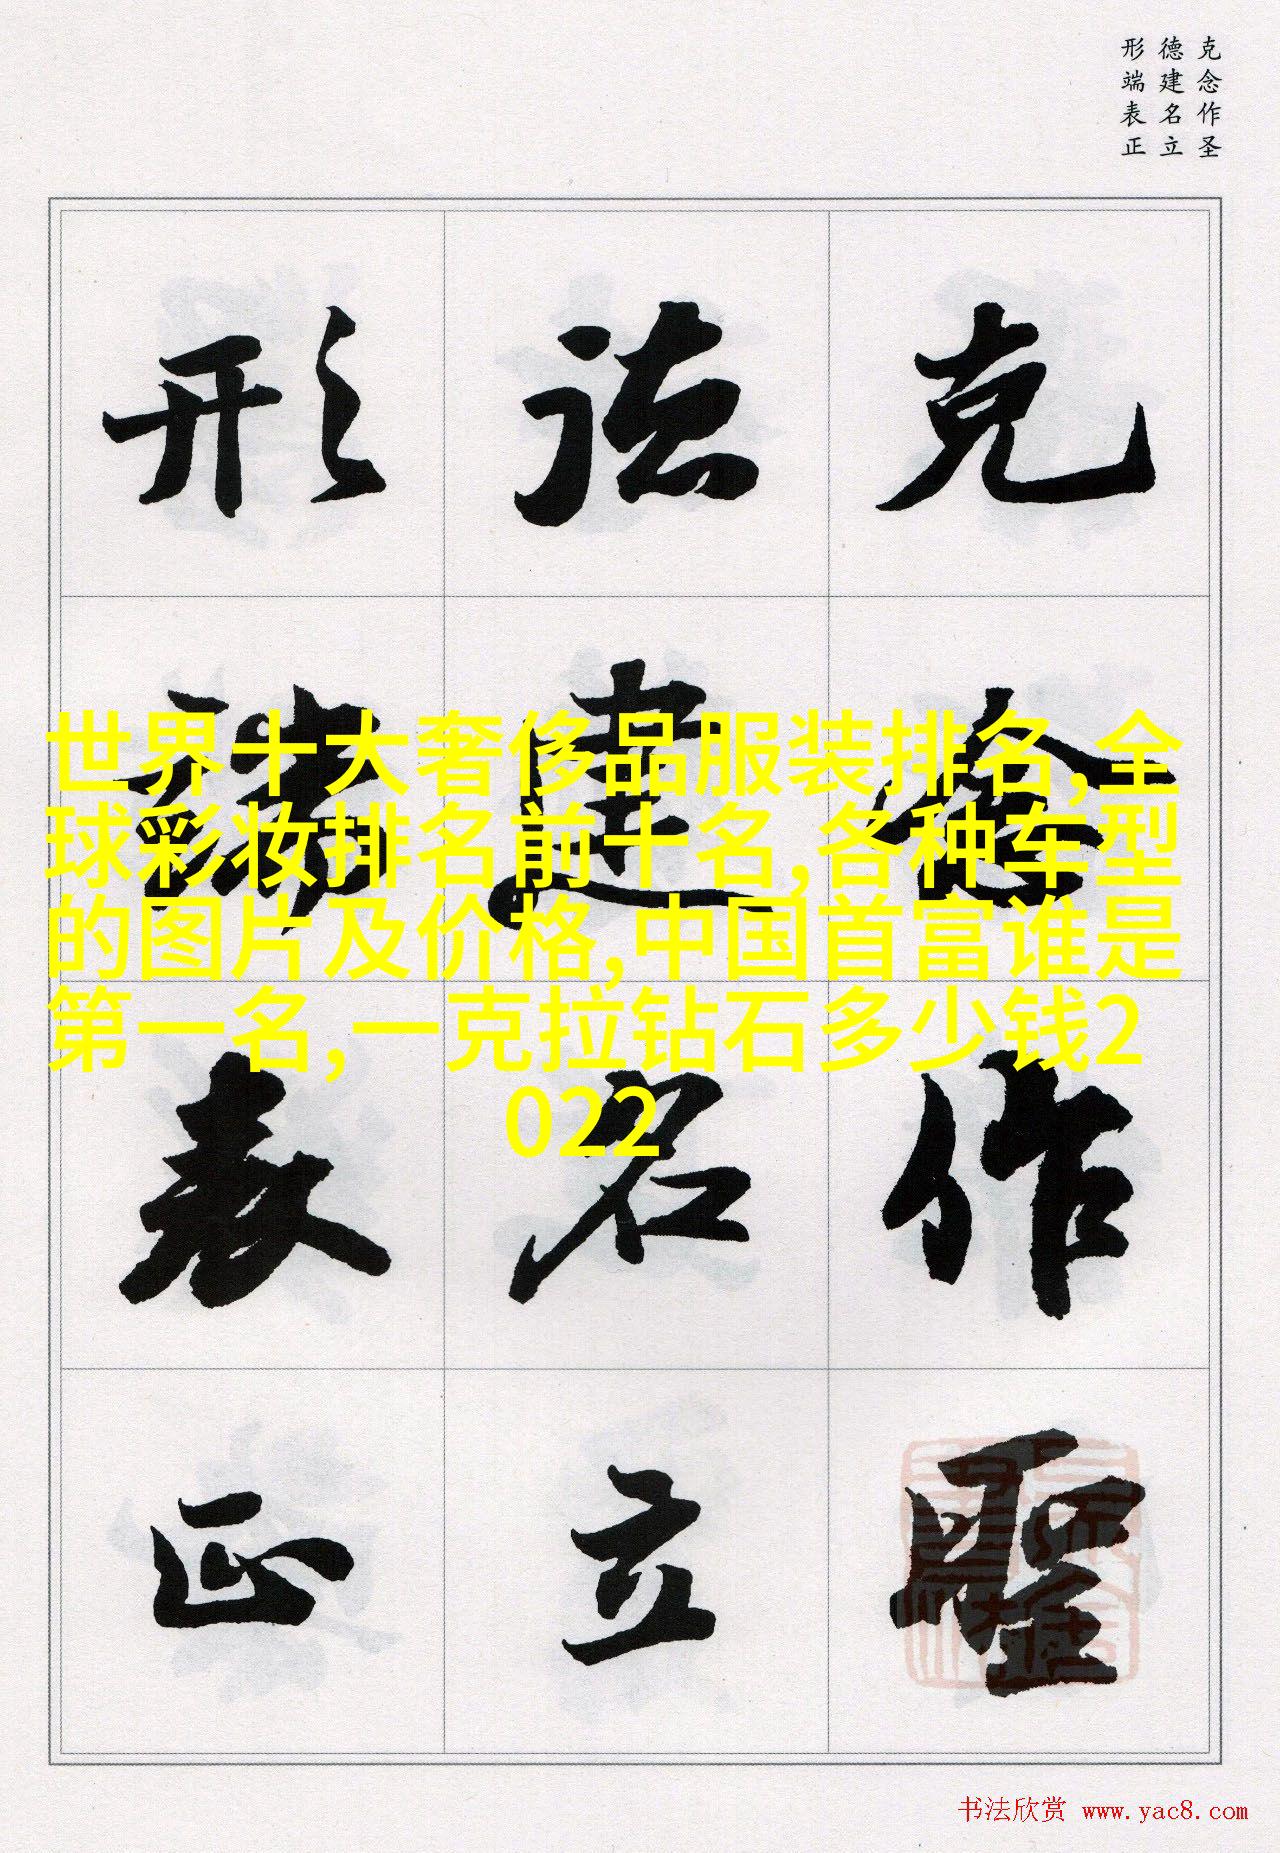 克念作圣
德建名立
形端表正
克念作聖
德建名立
形端表正
世界十大奢侈品服装排名,全
球彩妆排名前十名,各种车型
的图片及价格,中国首富谁是
第一名,一克拉钻石多少钱2
022
书法欣赏 www.yac8.com